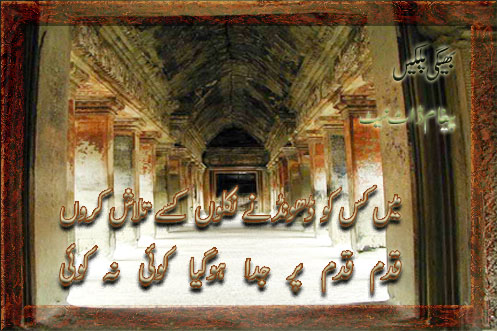 بھیگی پلکیں
پیغام ڈاٹ نیٹ
میں کس کو ڈھونڈنے نکلوں کسے تلاش کروں
قدم قدم پر جدا ہوگیا کوئی نہ کوئی